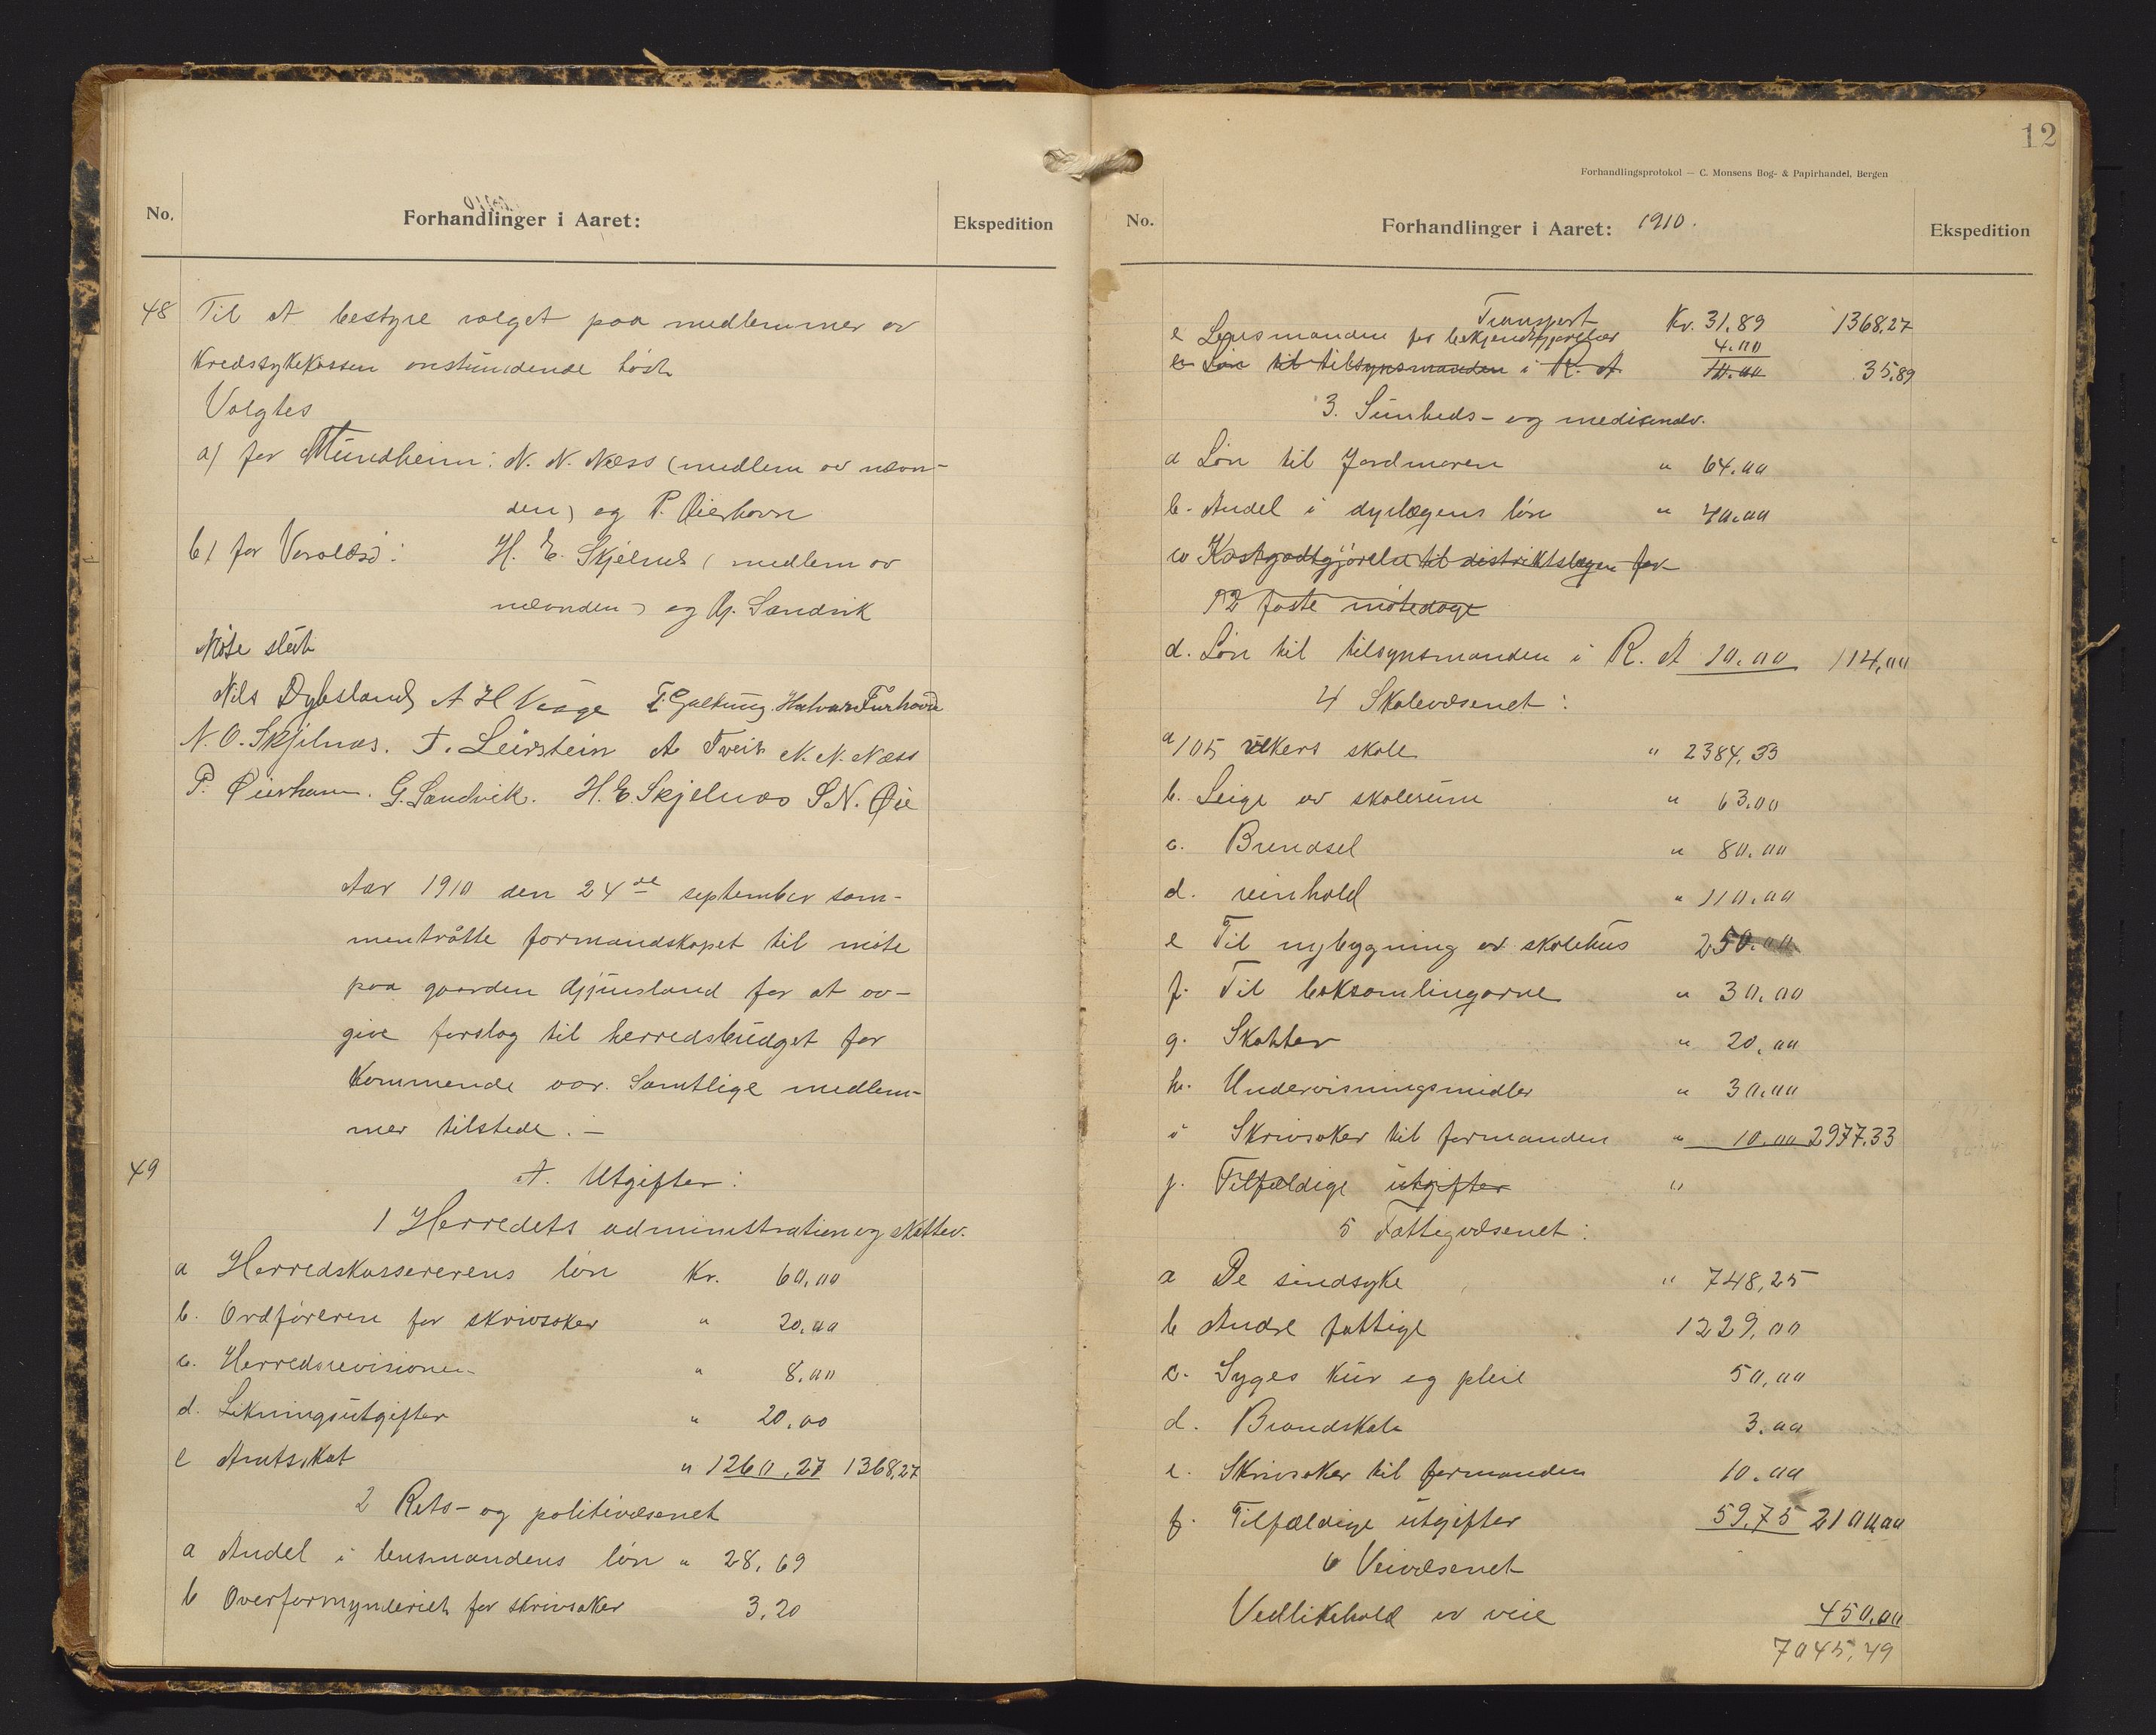 1910
No. Forhandlinger i Aaret: Ekspedition
48 Til at bestyre valget paa medlemmer av
kredssykekassen anstundende høst
Valgtes
a) for Mundheim: N. N. Næss (medlem av nævn-
den) og P. Øierhavn
b) for Varaldsø: H. E. Skjelnes (medlem av
nævnden) og G. Sandvik
Møte slut
Nils Dybsland A H Vaage T. Galtung. Halvar Furhovde
N. O. Skjelnæs. T. Leirstein A Tveit N. N. Næss
P. Øierhavn. G. Sandvik. H. E. Skjelnæs S N. Øie
Aar 1910 den 24de september sam-
mentraatte formandskapet til møte
paa gaarden Gjjønsland for at av-
give forslag til herredsbudget for
kommende aar. Samtlige medlem-
mer tilstede. —
49 A. Utgifter:
1 Herredets administration og skattev.
a Herredskassererens løn Kr. 60,00
b. Ordføreren for skrivsaker " 20,00
c. Herredsrevisionen " 8,00
d. Likningsutgifter " 20,00
e Amtsskat " 1260,27 1368,27
2 Rets- og politivæsenet
a Andel i lensmandens løn " 28,69
b Overformynderiet for skrivsaker 3,20
12
Forhandlingsprotokol — C. Monsens Bog- & Papirhandel, Bergen
No. Forhandlinger i Aaret: 1910. Ekspedition
Transport Kr. 31,89 1368,27
c Lensmanden for bekjendtgjørelser 4.00
c Løn til tilsynsmanden i R. A. 10.00 35,89
3. Sunheds- og medisinalv.
a Løn til Jordmoren " 64,00
b. Andel i dyrlægens løn " 40,00
c Kostgodtgjørelse til distriktslægen for
12 faste møtedage
d. Løn til tilsynsmanden i R. A 10,00 114,00
4 Skolevæsenet:
a/105 ukers skole " 2384,33
b. Leige av skolerum " 63.00
c. Brendsel " 80,00
d. reinhold " 110,00
e Til nybygning av skolehus 250,00
f. Til boksamlingarne " 30,00
g. Skatter " 20,00
h. Undervisningsmidler " 30,00
i Skrivsaker til formanden " 10,00 2977.33
j. Tilfældige utgifter "
5 Fattigvæsenet:
a De sindsyke " 748,25
b Andre fattige 1229,00
c. Syges kur og pleie 50,00
d. Brandskat 3.00
e. Skrivsaker til formanden 10.00
f. Tilfældige utgifter 59,75 2100,00
6 Veivæsenet
Vedlikehold av veie 450,00
7045,49